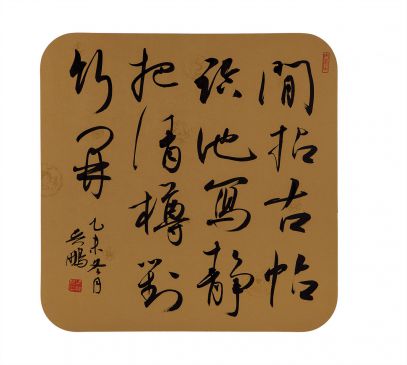 間拈古帖
臨池寫靜
把清樽對
竹開
乙未冬月
鵬